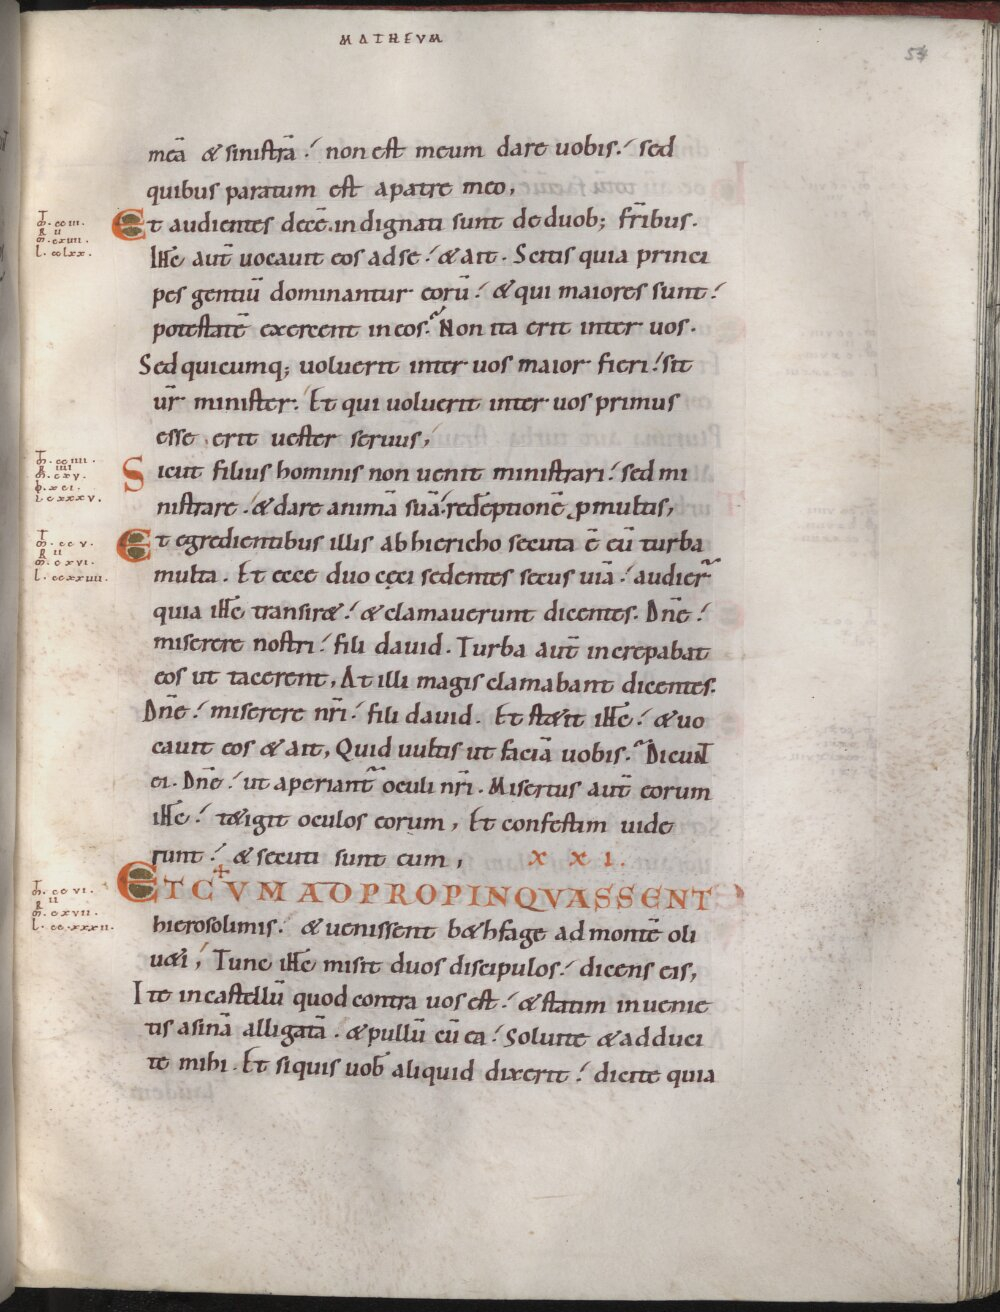 MATHEVM
54
meā & siniſtrā. non eſt meum dare uobis. sed
quibus paratum eſt apatre meo,
T.
m. cciii.
R II
m. cxiiii.
L. cclxx.
Et audientes decē indignati sunt deduob; fr̄ibus.
Ih̄c aut̄ uocauit eos adse. & ait. Scitis quia princi
pes gentiū dominantur eorū. & qui maiores sunt.
poteſtatē exercent ineos. Non ita erit inter uos.
Sed quicumq; uoluerit inter uos maior fieri. sit
ur̄ miniſter. Et qui uoluerit inter uos primus
esse. erit ueſter seruus,
T. cciiii.
R IIII
m. cxv.
Sicut filius hominis non uenit miniſtrari. sed mi
niſtrare. & dare animā suā. redēptionē ꝓmultis,
T.
m. ccv.
R II
m. cxvi.
L. ccxxiiii.
Et egredientibus illis abhiericho secuta ē eū turba
multa. Et ecce duo cęci sedentes secus uiā. audier̄
quia ih̄c transir&. & clamauerunt dicentes. Dn̄e.
miserere noſtri. fili dauid. Turba aut̄ increpabat
eos ut tacerent, At illi magis clamabant dicentes.
Dn̄e. miserere nr̄i. fili dauid. Et ſt&it ih̄c. & uo
cauit eos & ait, Quid uultis ut faciā uobis. Dicunt
ei. Dn̄e. ut aperiant̄ oculi nr̄i. Misertus aut̄ eorum
ih̄c. t&igit oculos eorum, Et confeſtim uide
runt. & secuti sunt eum, XXI.
T.
m. ccvi.
R II
m. cxvii.
L. ccxxxii.
ETCVM ADPROPINQVASSENT
hierosolimis. & uenissent b&hfage ad montē oli
u&i, Tunc ih̄c misit duos discipulos. dicens eis,
Ite incaſtellū quod contra uos eſt. & ſtatim inuenie
tis asinā alligatā. & pullū cū ea. Soluite & adduci
te mihi. Et siquis uob̄ aliquid dixerit. dicite quia